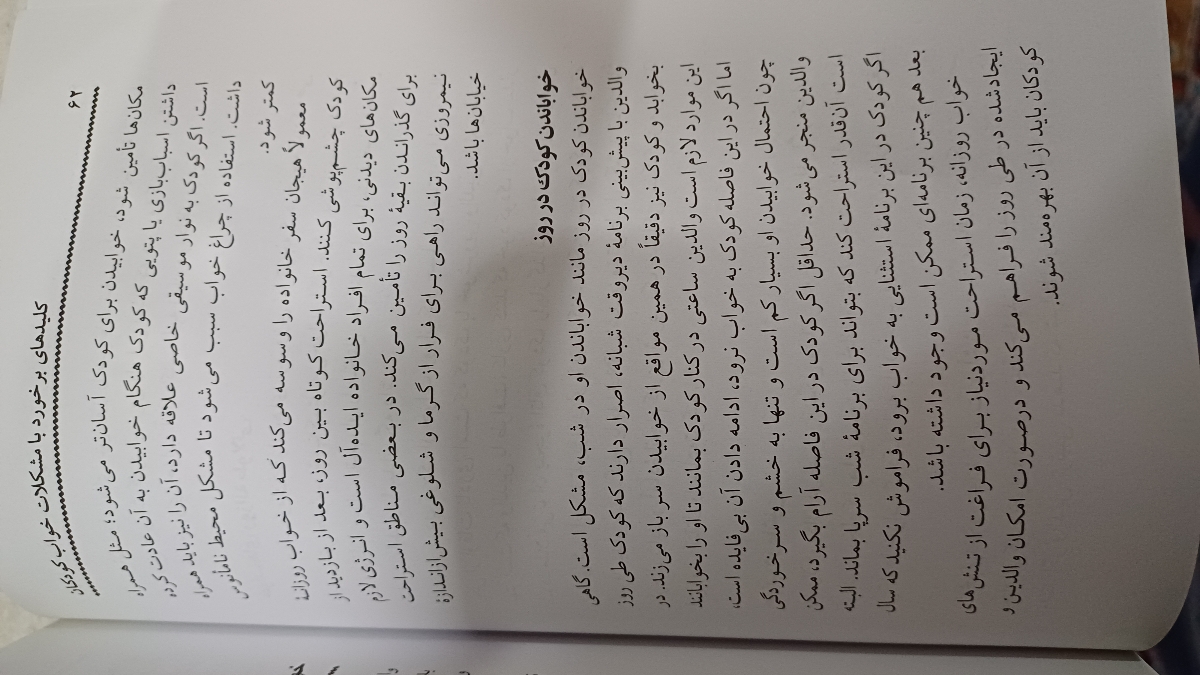 ۶۲
کلیدهای برخورد با مشکلات خواب کودکان
مکان‌ها تأمین شود، خوابیدن برای کودک آسان‌تر می‌شود؛ مثل همراه
داشتن اسباب‌بازی یا پتویی که کودک هنگام خوابیدن به آن عادت کرده
است. اگر کودک به نوار موسیقی خاصی علاقه دارد، آن را نیز باید همراه
داشت. استفاده از چراغ خواب سبب می‌شود تا مشکل محیط نامأنوس
کمتر شود.
معمولاً هیجان سفر خانواده را وسوسه می‌کند که از خواب روزانهٔ
کودک چشم‌پوشی کنند. استراحت کوتاه بین روز، بعد از بازدید از
مکان‌های دیدنی، برای تمام افراد خانواده ایده‌آل است و انرژی لازم
برای گذراندن بقیهٔ روز را تأمین می‌کند. در بعضی مناطق استراحت
نیمروزی می‌تواند راهی برای فرار از گرما و شلوغی بیش‌ازاندازهٔ
خیابان‌ها باشد.
خواباندن کودک در روز
خواباندن کودک در روز مانند خواباندن او در شب، مشکل است. گاهی
والدین با پیش‌بینی برنامهٔ دیروقت شبانه، اصرار دارند که کودک طی روز
بخوابد و کودک نیز دقیقاً در همین مواقع از خوابیدن سر باز می‌زند. در
این موارد لازم است والدین ساعتی در کنار کودک بمانند تا او را بخوابانند
اما اگر در این فاصله کودک به خواب نرود، ادامه دادن آن بی‌فایده است،
چون احتمال خوابیدن او بسیار کم است و تنها به خشم و سرخوردگی
والدین منجر می‌شود. حداقل اگر کودک در این فاصله آرام بگیرد، ممکن
است آن‌قدر استراحت کند که بتواند برای برنامهٔ شب سرپا بماند. البته
اگر کودک در این برنامهٔ استثنایی به خواب برود، فراموش نکنید که سال
بعد هم چنین برنامه‌ای ممکن است وجود داشته باشد.
خواب روزانه، زمان استراحت موردنیاز برای فراغت از تنش‌های
ایجادشده در طی روز را فراهم می‌کند و درصورت امکان والدین و
کودکان باید از آن بهره‌مند شوند.